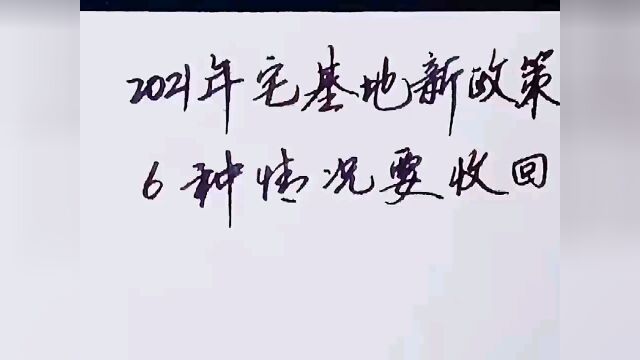 2021年宅基地新政策
6种情况要收回